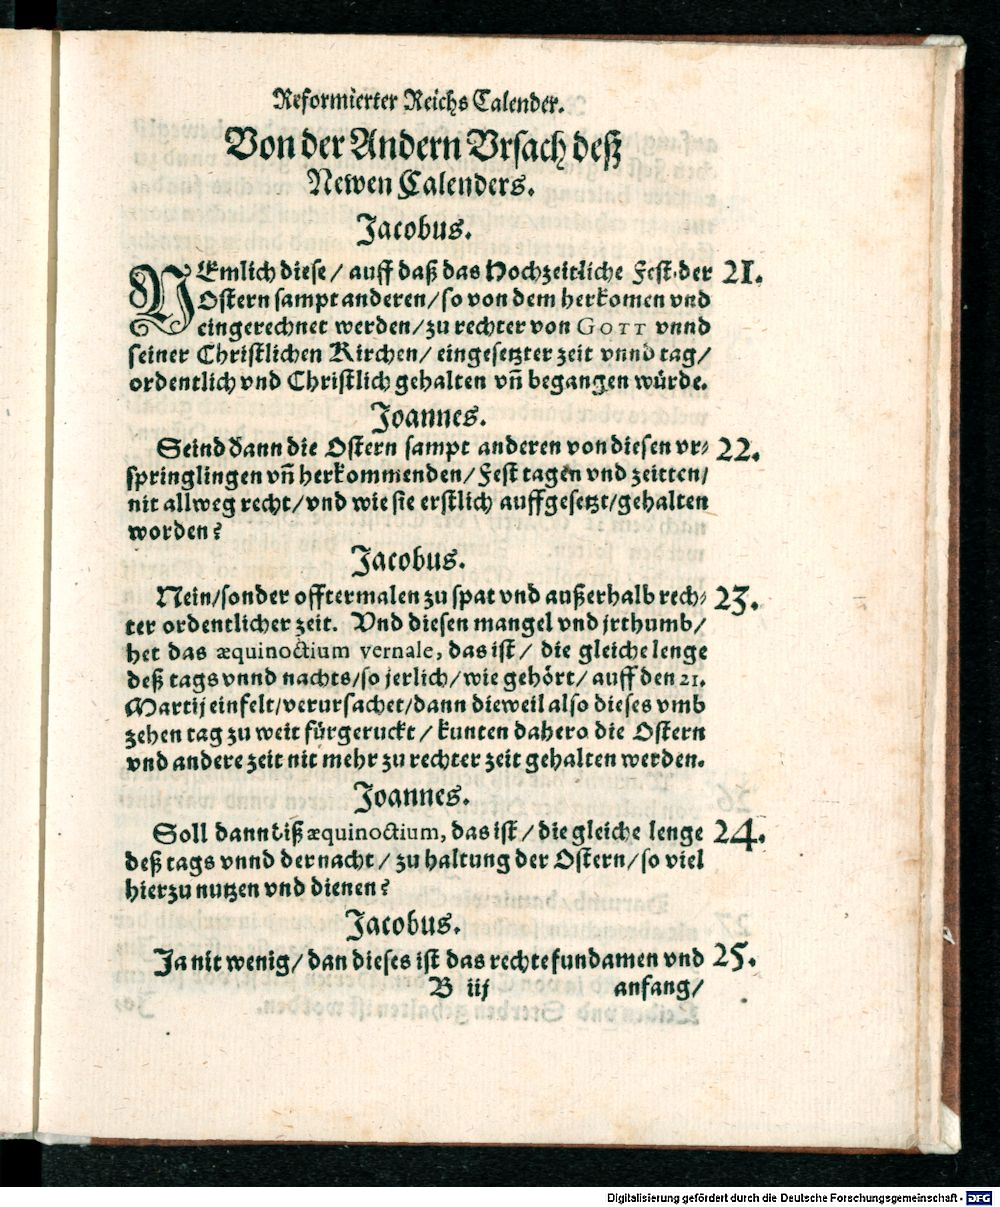 Reformierter Reichs Calender.
Von der Andern Vrsach deß
Newen Calenders.
Jacobus.
NEmlich diese / auff daß das Hochzeitliche Fest der 21.
Ostern sampt anderen / so von dem herkomen vnd
eingerechnet werden / zu rechter von GOTT vnnd
seiner Christlichen Kirchen / eingesetzter zeit vnnd tag /
ordentlich vnd Christlich gehalten vn̄ begangen würde.
Joannes.
Seind dann die Ostern sampt anderen von diesen vr- 22.
springlingen vn̄ herkommenden / Fest tagen vnd zeitten /
nit allweg recht / vnd wie sie erstlich auffgesetzt / gehalten
worden?
Jacobus.
Nein / sonder offtermalen zu spat vnd außerhalb rech- 23.
ter ordentlicher zeit. Vnd diesen mangel vnd jrthumb /
het das æquinoctium vernale, das ist / die gleiche lenge
deß tags vnnd nachts / so jerlich / wie gehört / auff den 21.
Martij einfelt / verursachet / dann dieweil also dieses vmb
zehen tag zu weit fürgeruckt / kunten dahero die Ostern
vnd andere zeit nit mehr zu rechter zeit gehalten werden.
Joannes.
Soll dann diß æquinoctium, das ist / die gleiche lenge 24.
deß tags vnnd der nacht / zu haltung der Ostern / so viel
hierzu nutzen vnd dienen?
Jacobus.
Ja nit wenig / dan dieses ist das rechte fundamen vnd 25.
B iij anfang /
Digitalisierung gefördert durch die Deutsche Forschungsgemeinschaft - DFG